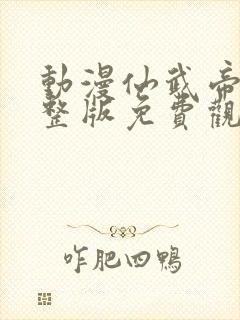 動漫仙武帝
整版免費觀
咋肥四鴨